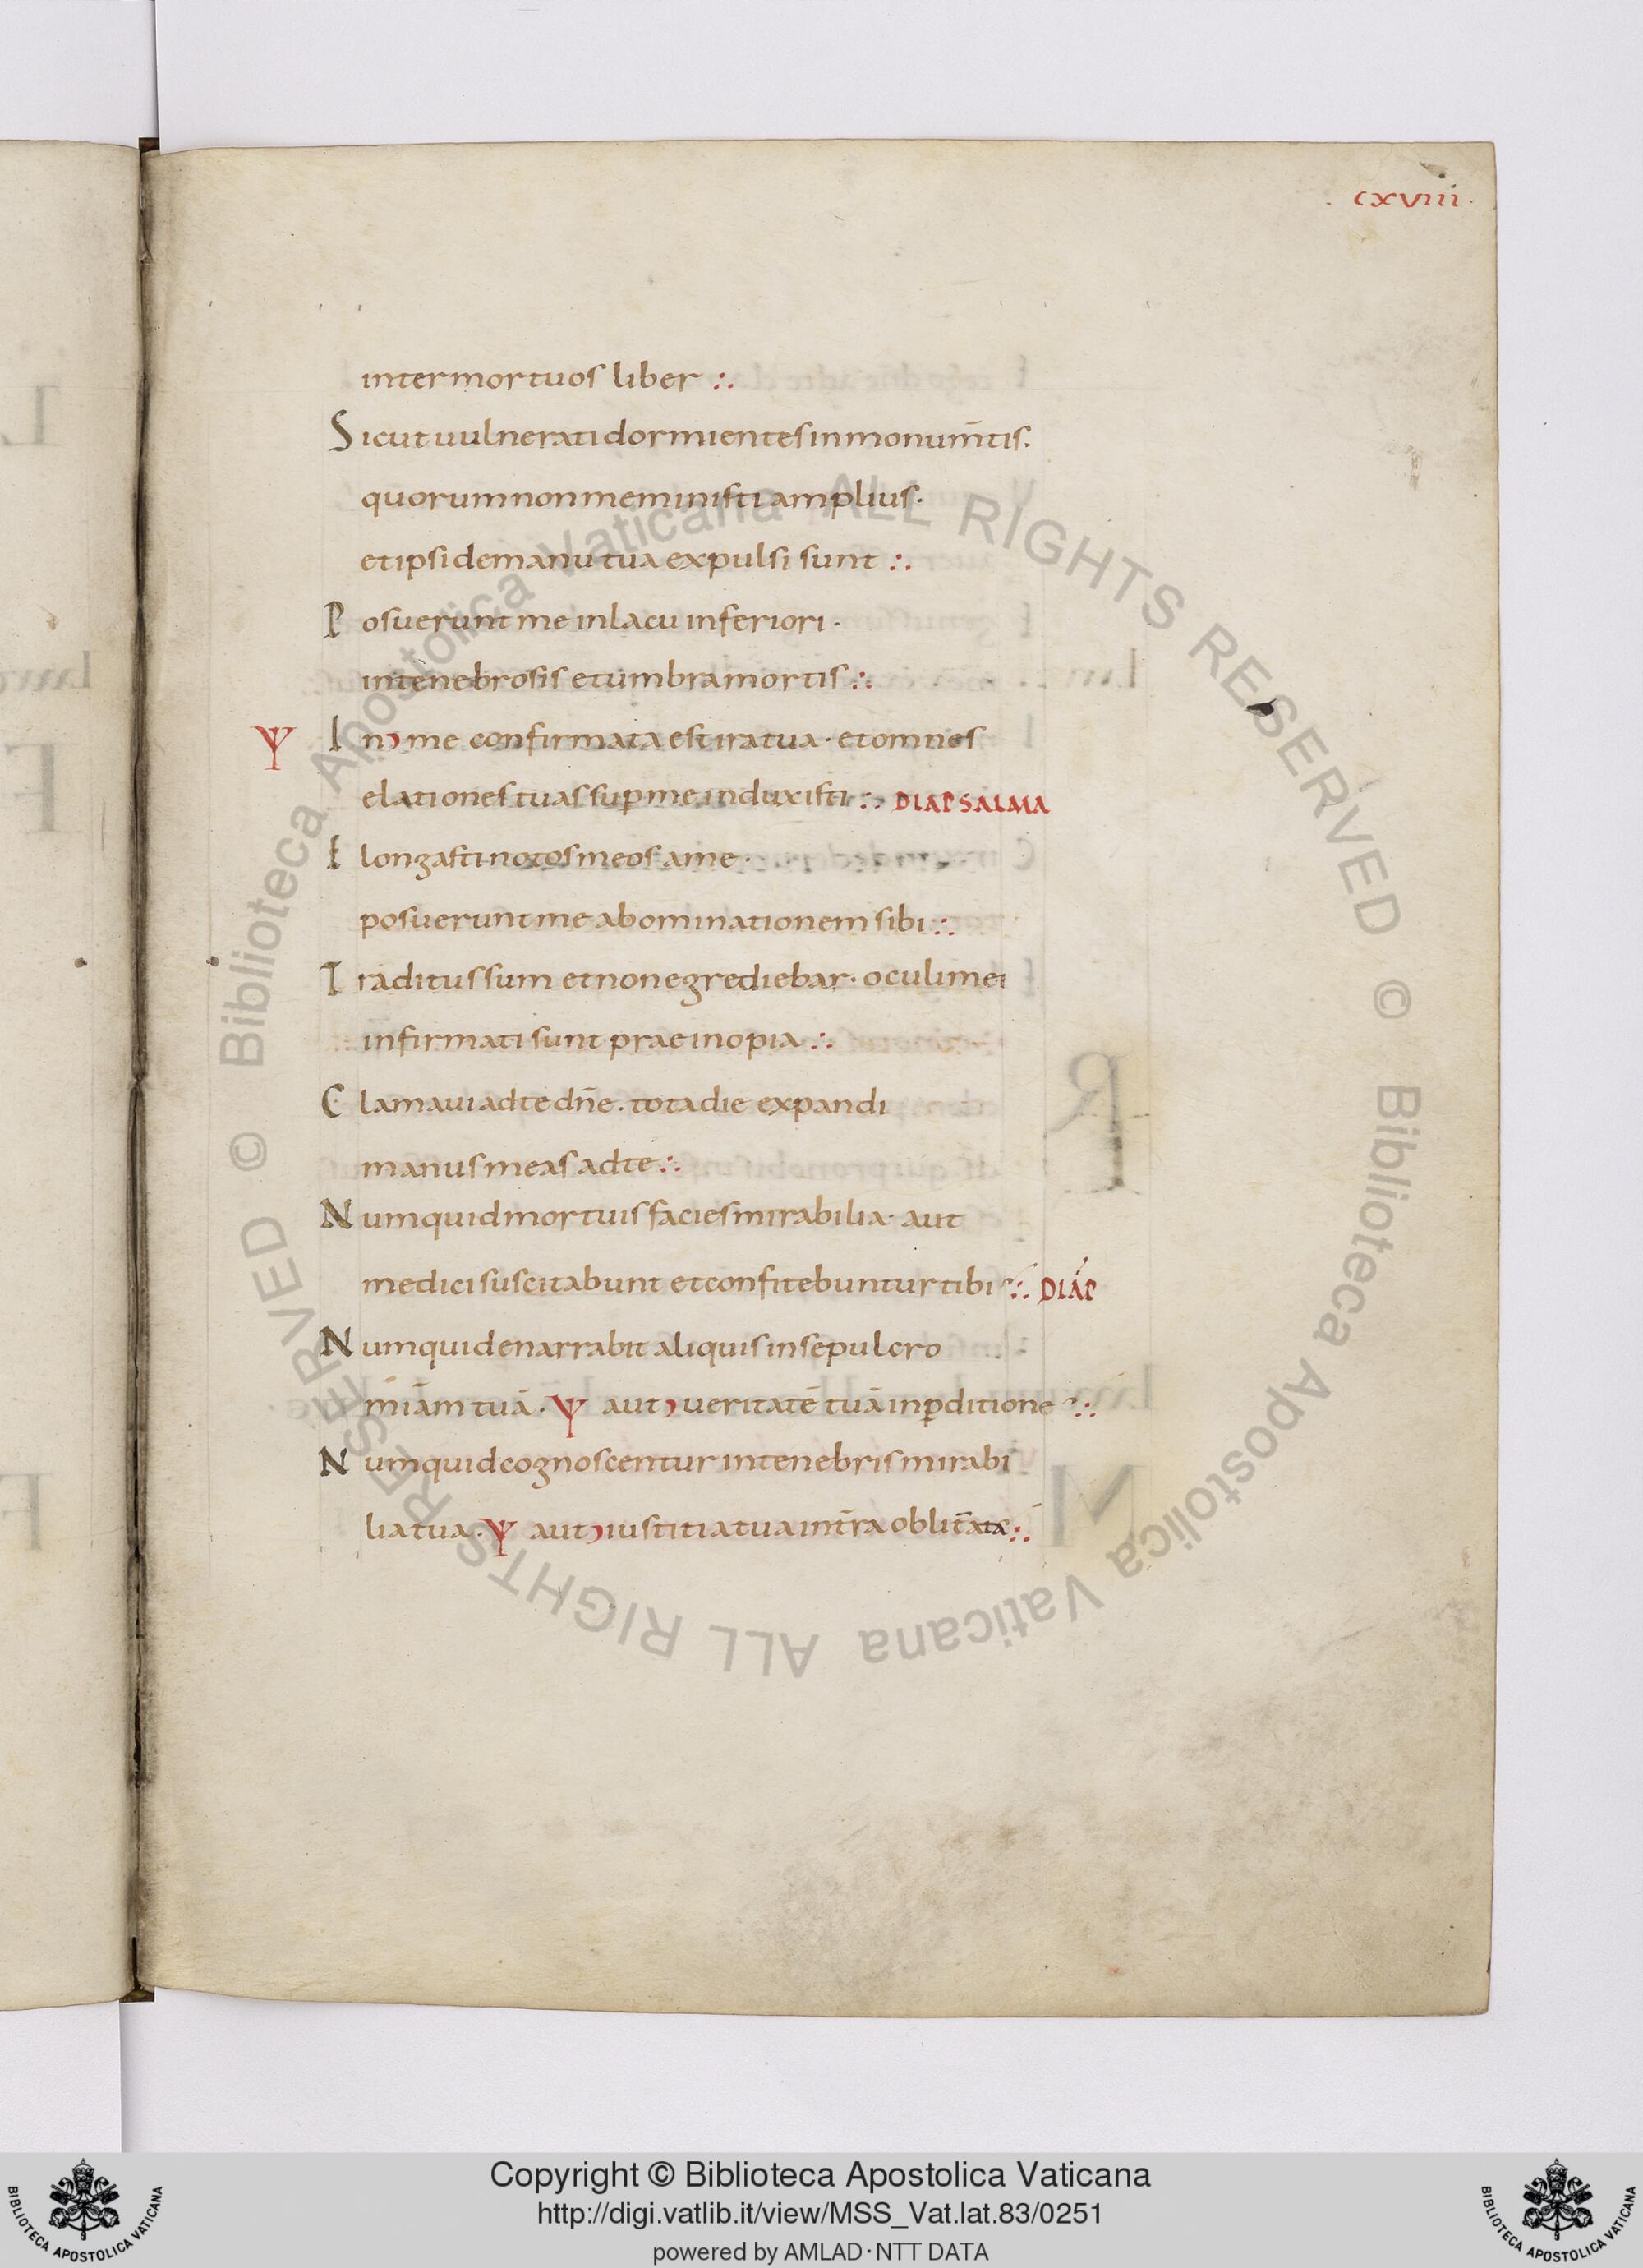 . cxviii .
inter mortuos liber :.
Sicut uulnerati dormientes in monum̄tis.
quorum non meministi amplius.
et ipsi de manu tua expulsi sunt :.
Posuerunt me in lacu inferiori .
in tenebrosis et umbra mortis :.
Ψ In me confirmata est ira tua . et omnes
elationes tuas sup̱ me induxisti :. DIAPSALMA
Elongasti notos meos a me .
posuerunt me abominationem sibi :.
Traditus sum et non egrediebar . oculi mei
infirmati sunt prae inopia :.
Clamaui ad te dn̄e . tota die expandi
manus meas ad te :.
Numquid mortuis facies mirabilia . aut
medici suscitabunt et confitebuntur tibi :. DIAP
Numquid enarrabit aliquis in sepulcro
mīam tuā . Ψ aut ueritatē tuā in p̱ditione :.
Numquid cognoscentur in tenebris mirabi
lia tua . Ψ aut iustitia tua in tr̄a oblitata :.
© Biblioteca Apostolica Vaticana ALL RIGHTS RESERVED © Biblioteca Apostolica Vaticana ALL RIGHTS RESERVED
Copyright © Biblioteca Apostolica Vaticana
http://digi.vatlib.it/view/MSS_Vat.lat.83/0251
powered by AMLAD·NTT DATA
BIBLIOTECA APOSTOLICA VATICANA
BIBLIOTECA APOSTOLICA VATICANA